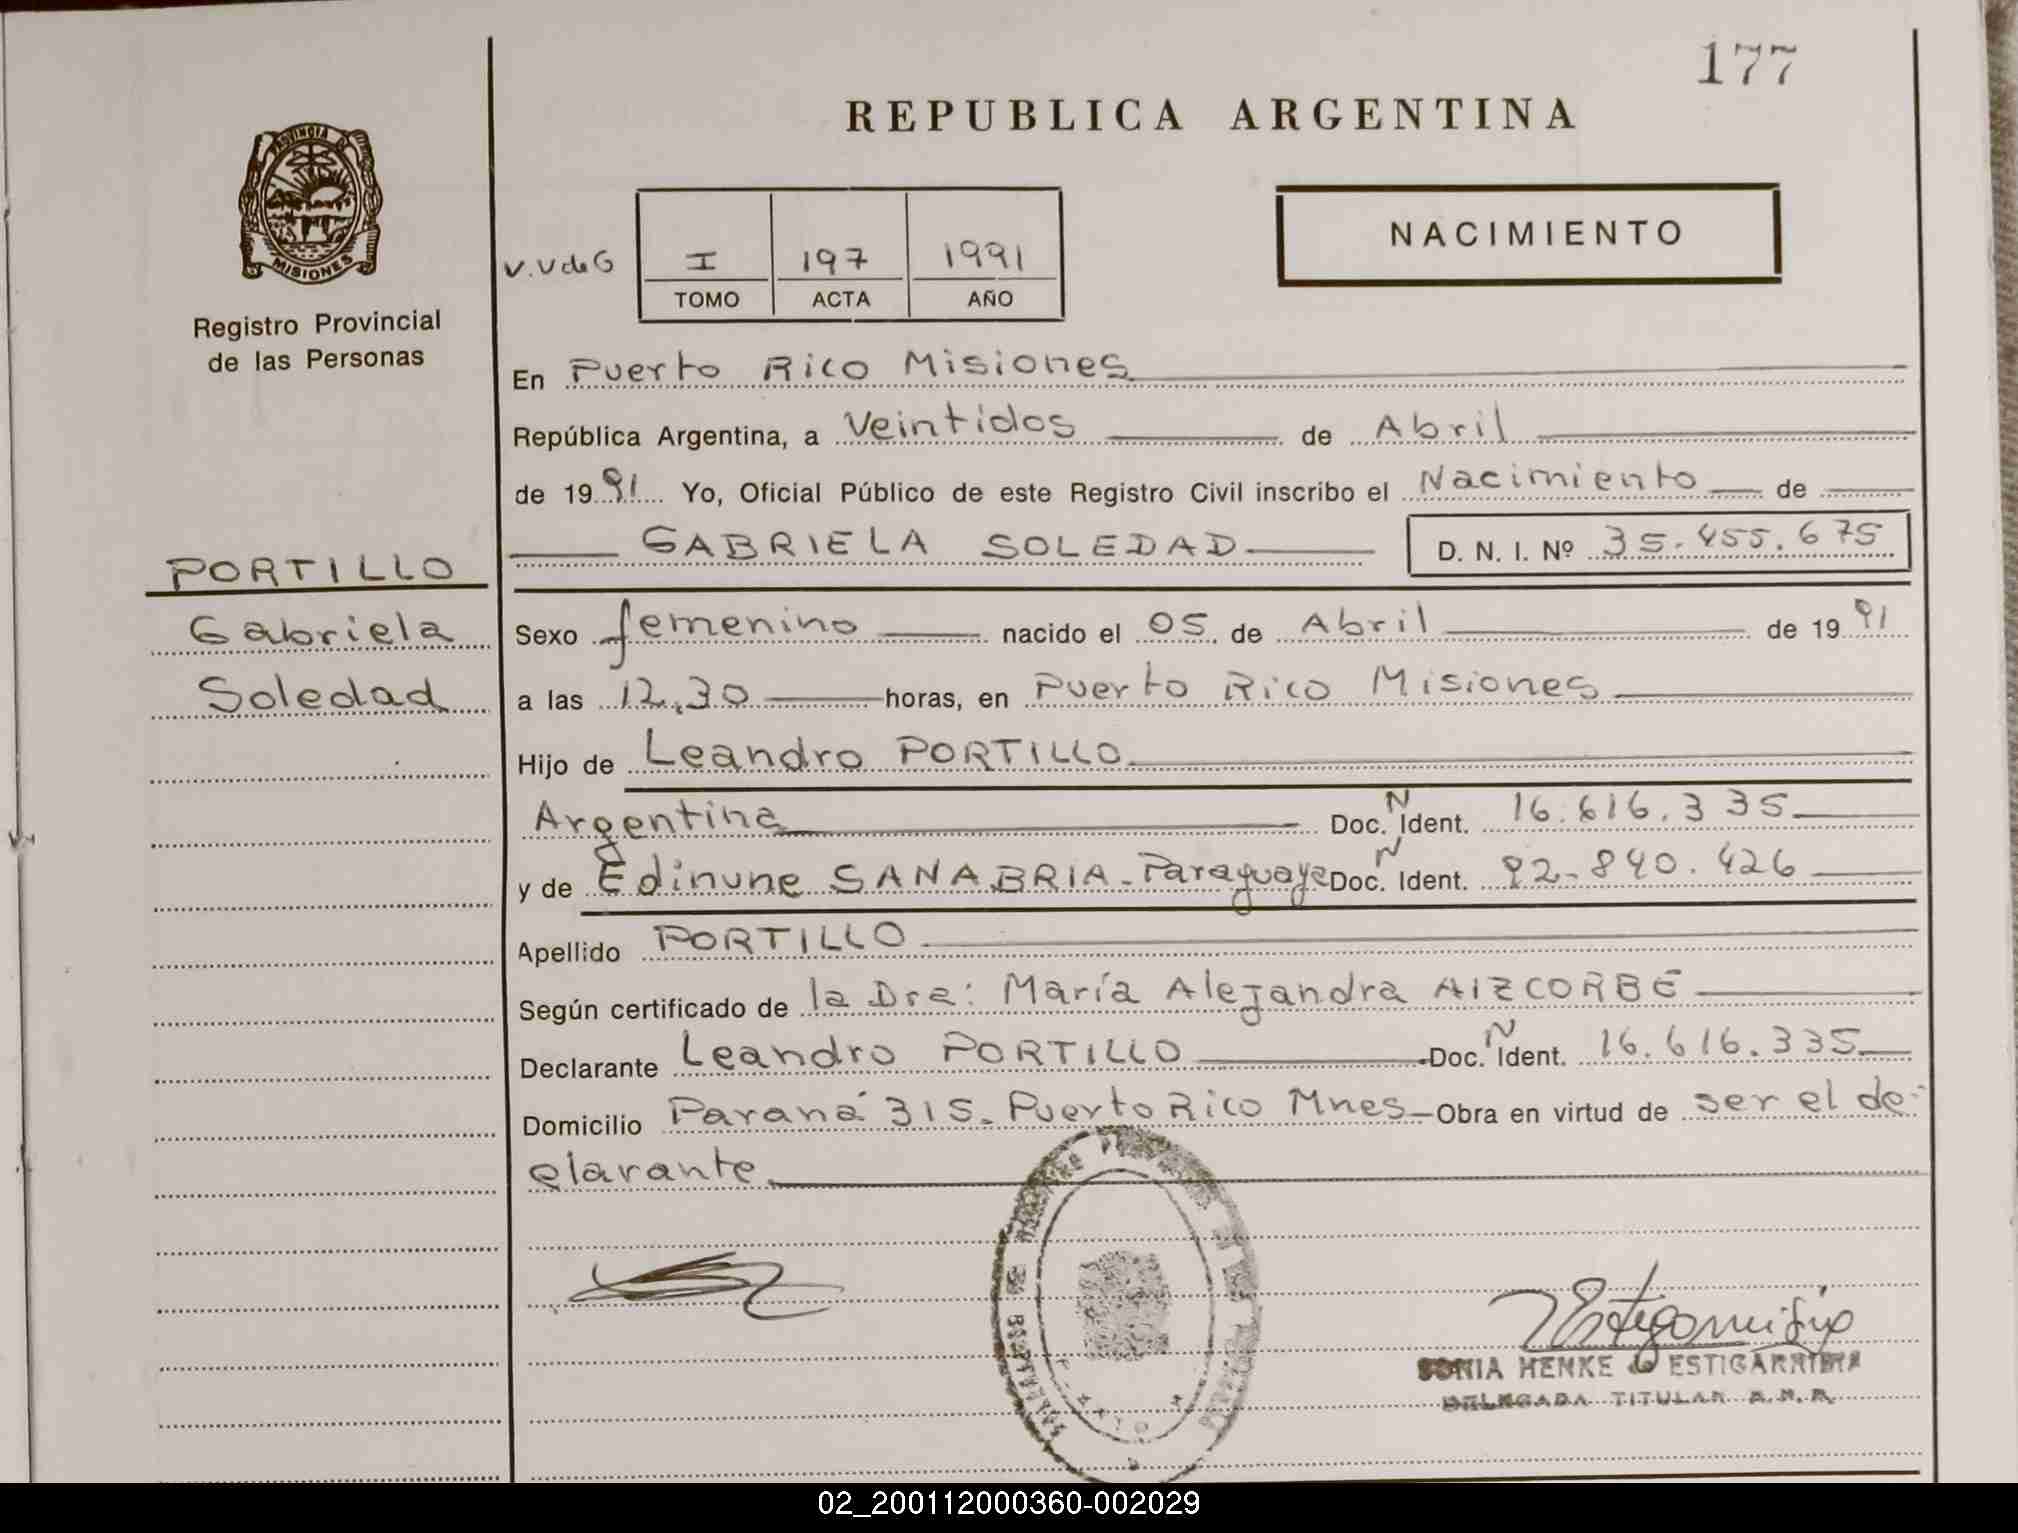 177
REPUBLICA ARGENTINA
PROVINCIA DE
MISIONES
Registro Provincial
de las Personas
V.V de G
I 197 1991
TOMO ACTA AÑO
NACIMIENTO
En Puerto Rico Misiones
República Argentina, a Veintidos de Abril
de 1991 Yo, Oficial Público de este Registro Civil inscribo el Nacimiento de
GABRIELA SOLEDAD D. N. I. Nº 35.455.675
PORTILLO
Gabriela
Soledad
Sexo femenino nacido el 05 de Abril de 1991
a las 12,30 horas, en Puerto Rico Misiones
Hijo de Leandro PORTILLO
Argentina Doc. N Ident. 16.616.335
y de Edinune SANABRIA - Paraguaya Doc. N Ident. 92.840.426
Apellido PORTILLO
Según certificado de la Dra: María Alejandra AIZCORBE
Declarante Leandro PORTILLO Doc. N Ident. 16.616.335
Domicilio Paraná 315. Puerto Rico Mnes Obra en virtud de ser el de-
clarante
SONIA HENKE de ESTIGARRIBIA
DELEGADA TITULAR R.P.P.
02_200112000360-002029